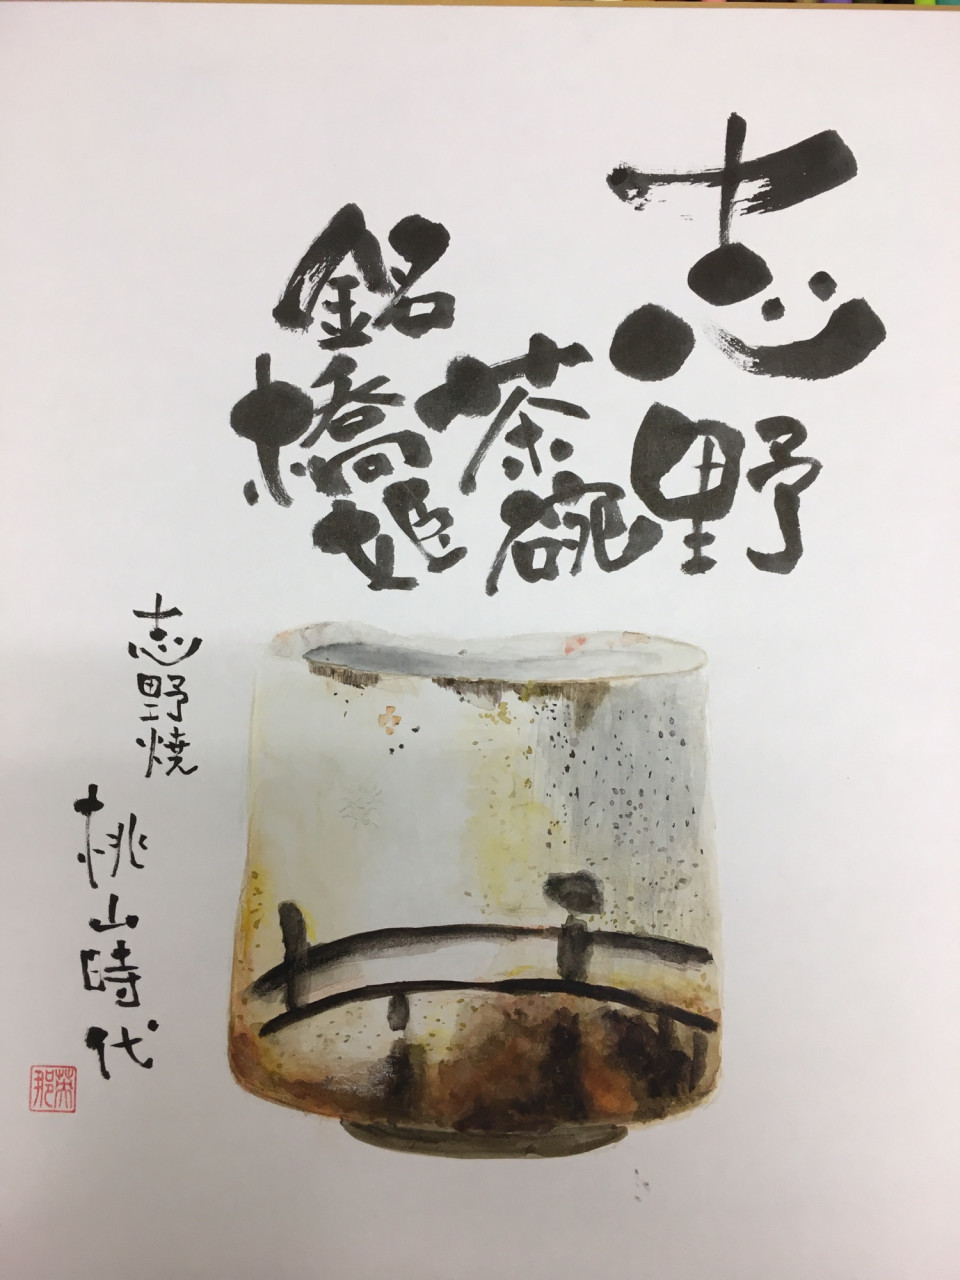 志野
茶碗
銘
橋姫
志野焼
桃山時代